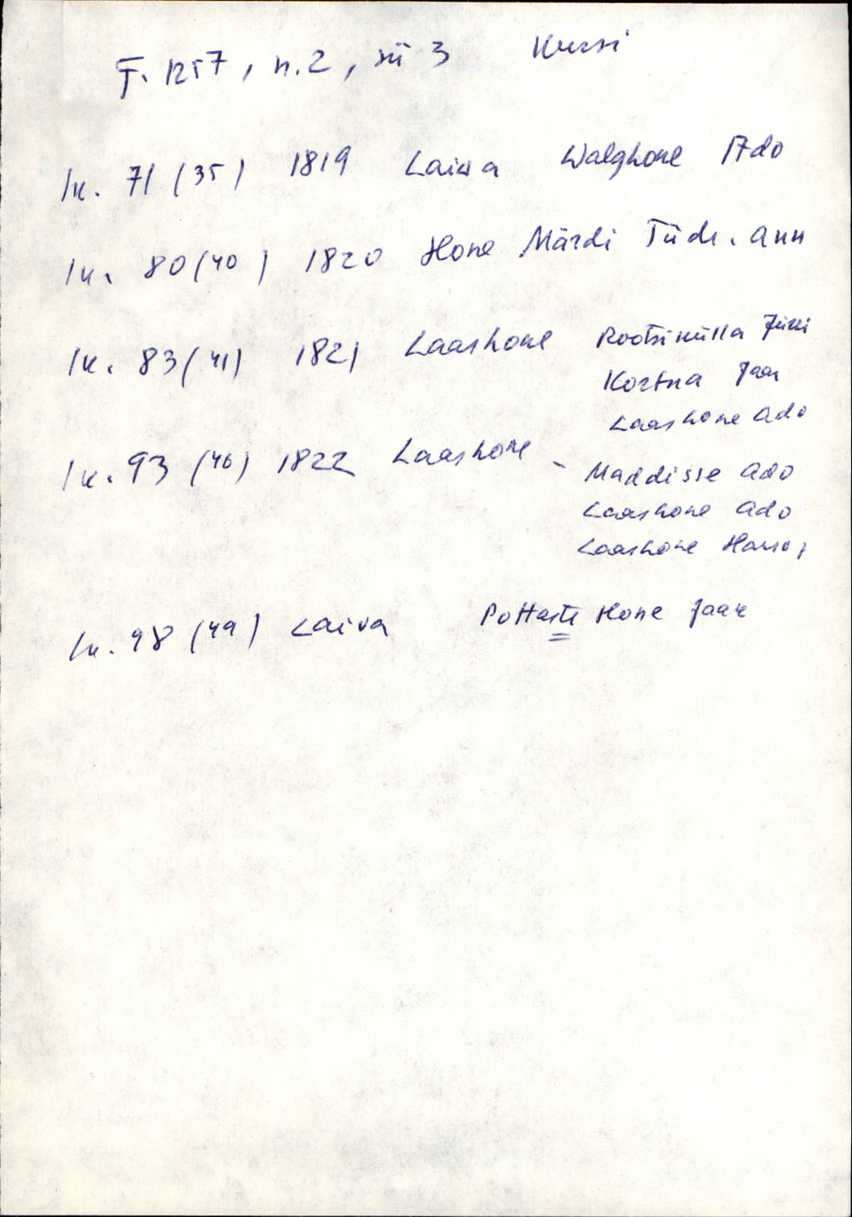 F. 1257, n.2, sü 3 Kursi
lk. 71 (35) 1819 Laiwa Walghone Ado
lk. 80 (40) 1820 Hone Märdi Tüdr. Ann
lk. 83 (41) 1821 Laashone Rootsikülla Jürri
Kortna Jaan
Laashone Ado
lk. 93 (46) 1822 Laashone - Maddisse Ado
Laashone Ado
Laashone
lk. 98 (49) Laiva Pottaste Hone Jaak